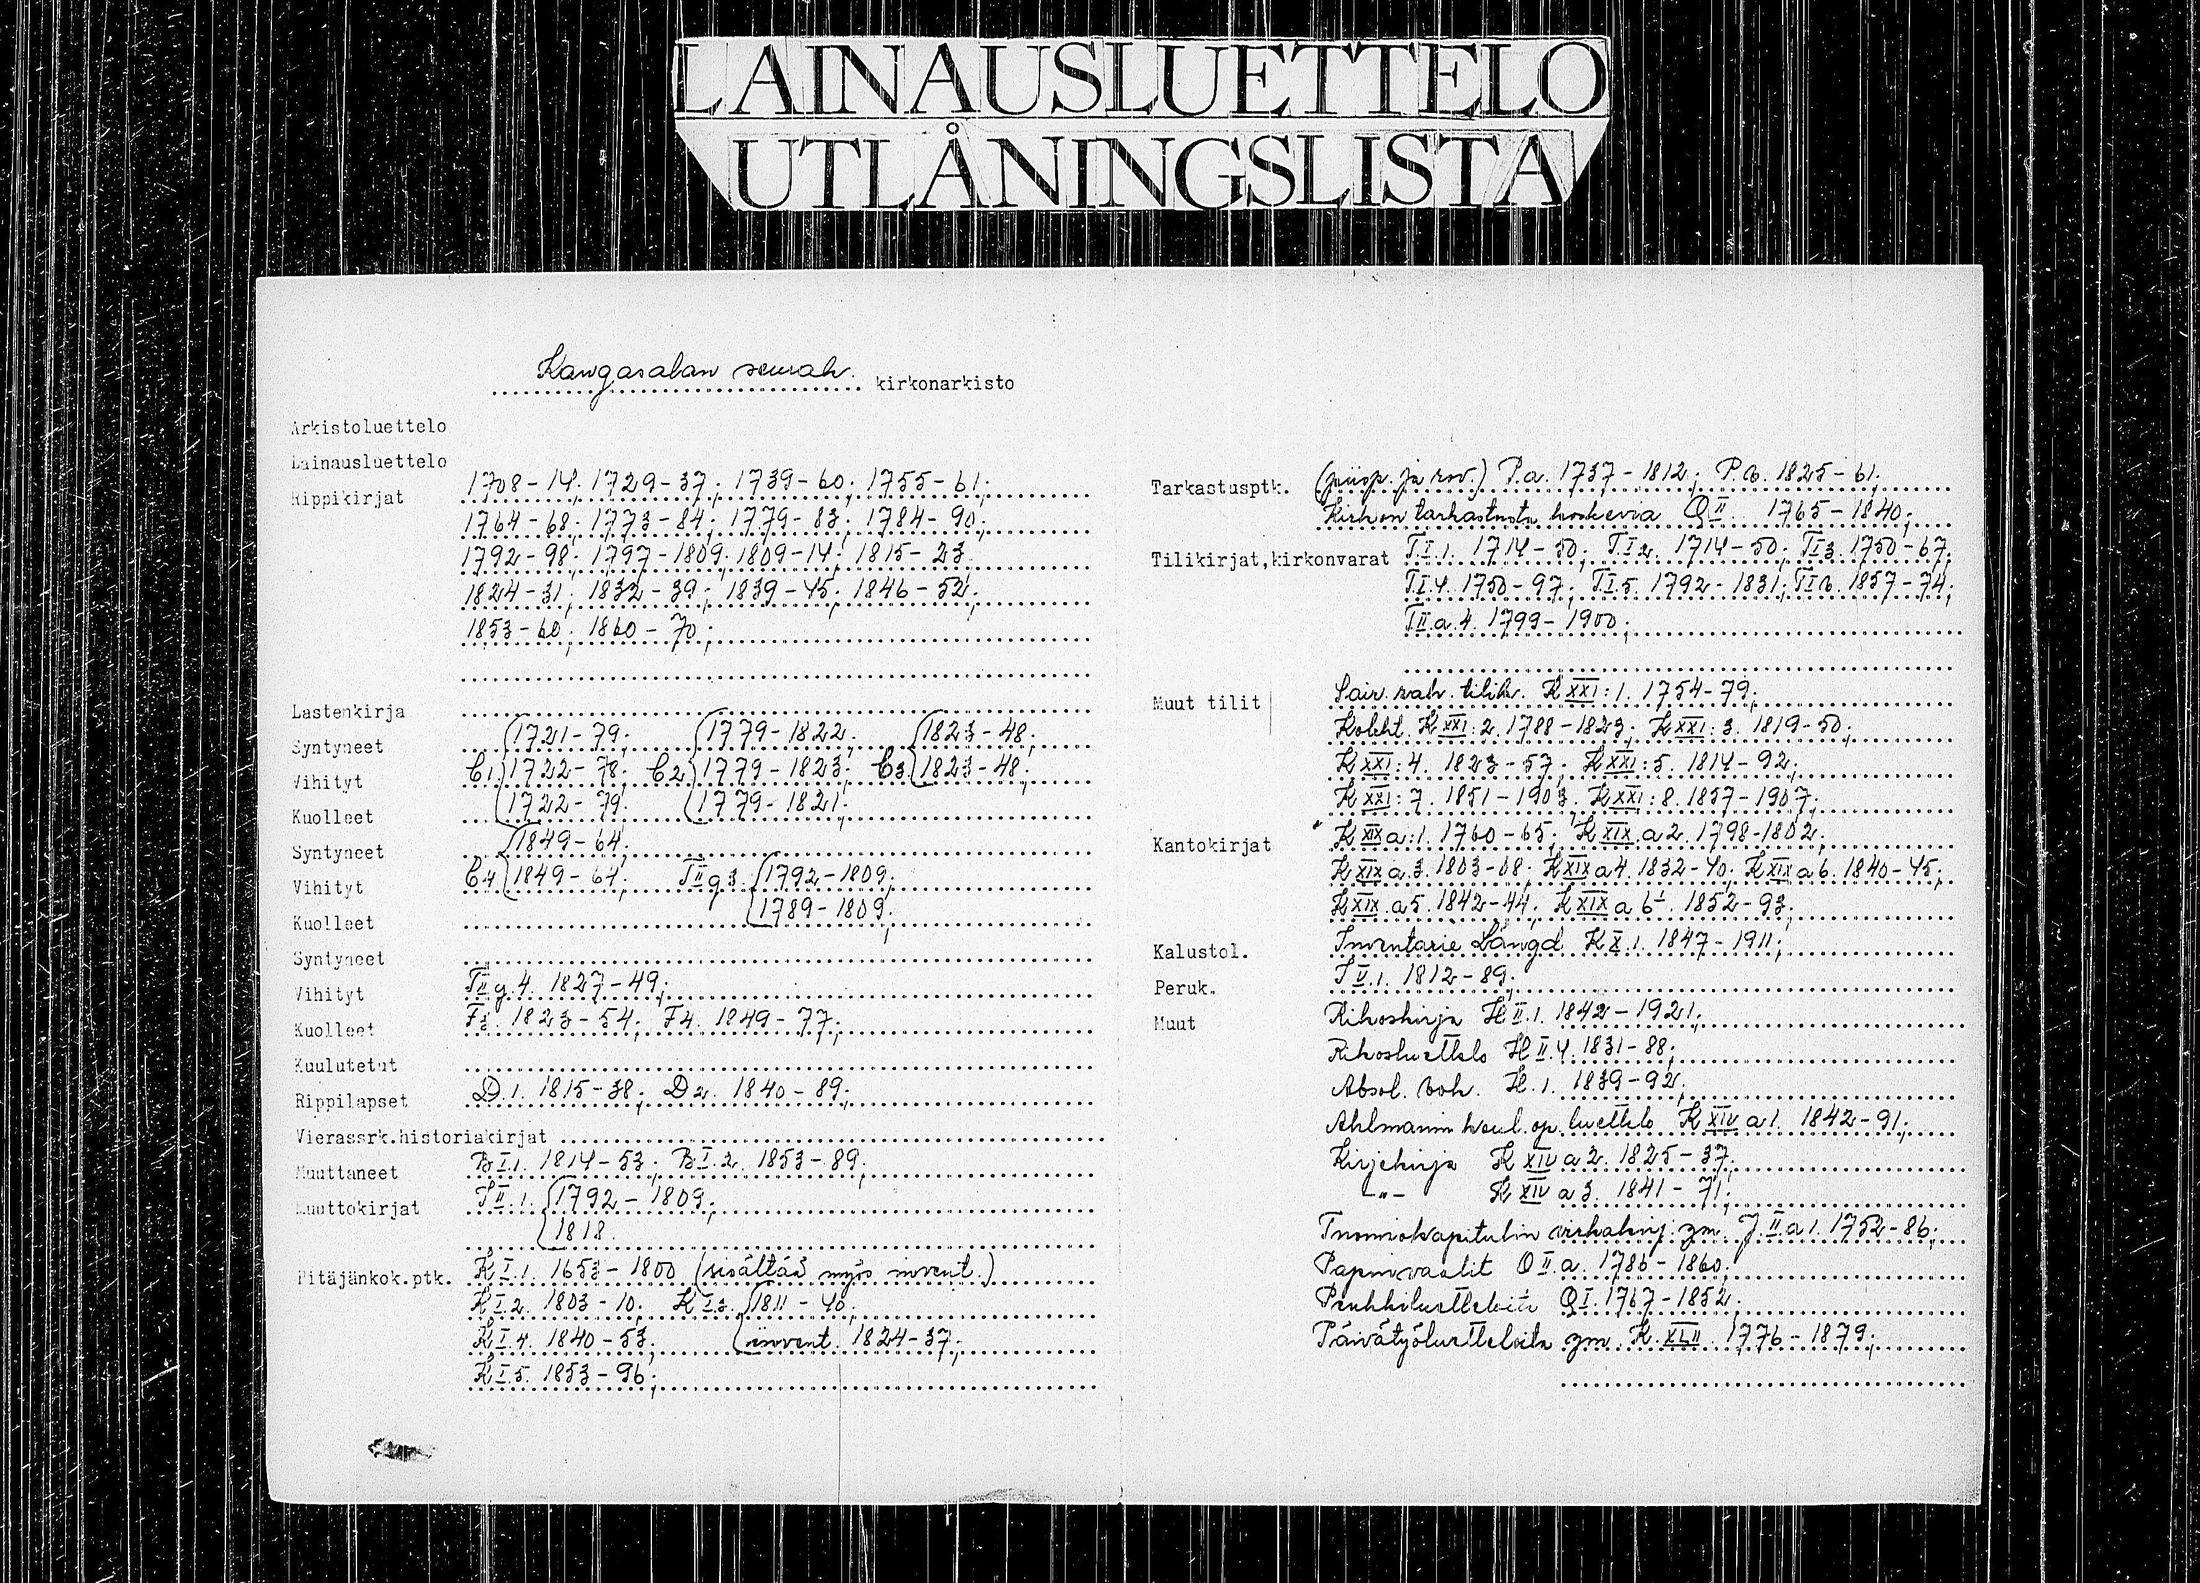 LAINAUSLUETTELO
UTLÅNINGSLISTA
Kangasalan seurak. kirkonarkisto
Arkistoluettelo
Lainausluettelo
Rippikirjat 1708-14; 1729-37; 1739-60; 1755-61;
1764-68; 1773-84; 1779-83; 1784-90;
1792-98; 1797-1809; 1809-14; 1815-23
1824-31; 1832-39; 1839-45; 1846-52;
1853-60; 1860-70;
Lastenkirja
Syntyneet 1721-79; 1779-1822; 1823-48;
Vihityt C1 1722-78; C2 1779-1823; C3 1823-48;
Kuolleet 1722-79. 1779-1821;
Syntyneet 1849-64;
Vihityt C4 1849-64; TII g 3. 1792-1809;
Kuolleet 1789-1809;
Syntyneet
Vihityt TII g. 4. 1827-49;
Kuolleet 1823-54; F4. 1849-77;
Kuulutetut
Rippilapset D.1. 1815-38; D2. 1840-89;
Vierassrk.historiakirjat
Muuttaneet BI.1. 1814-53; BI.2. 1853-89;
Muuttokirjat II.1. 1792-1809;
1818.
Pitäjänkok.ptk. KI.1. 1653-1800 (sisältää myös invent.)
KI.2. 1803-10; KI.3. 1811-40;
KI.4. 1840-53; invent. 1824-37;
KI.5. 1853-96;
Tarkastusptk. (piisp. ja rov.) P.a. 1737-1812; P.b. 1825-61;
Kirkon tarkastusta koskevia QII 1765-1840;
Tilikirjat,kirkonvarat TI.1. 1714-50; TI2. 1714-50; TI3. 1750-67.
TI.4. 1750-97; TI.5. 1792-1831; TI6. 1857-74;
TII.a.4. 1799-1900;
Muut tilit Sair. rah. tilik. KXXI:1. 1754-79;
Kolekt. KXXI:2. 1788-1823; KXXI:3. 1819-50;
KXXI:4. 1823-57; KXXI:5. 1814-92;
KXXI:7. 1851-1903. KXXI:8. 1857-1907;
Kantokirjat KXIXa:1. 1760-65; KXIX.a2. 1798-1802;
KXIX a.3. 1803-08; KXIX a4. 1832-40; KXIX a6. 1840-45;
KXIX.a5. 1842-44; KXIX a 6 1852-93;
Kalustol. Inventarie Längd KX.1. 1847-1911;
Peruk. 1812-89;
Muut Rikoskirja HII.1. 1842-1921;
Rikosluettelo HII.4. 1831-88;
Absol. bok. H.1. 1839-92;
Ahlmannin koul.op.luettelo KXIV a1. 1842-91;
Kirjekirja KXIV a2. 1825-37;
-"- KXIV a 3. 1841-71;
Tuomiokapitulin virkakirj. ym. J.II.a1. 1752-86;
Papinvaalit OII.a. 1786-1860;
Penkkiluetteloita QI. 1767-1852;
Päivätyöluetteloita ym. K.XLII. 1776-1879;